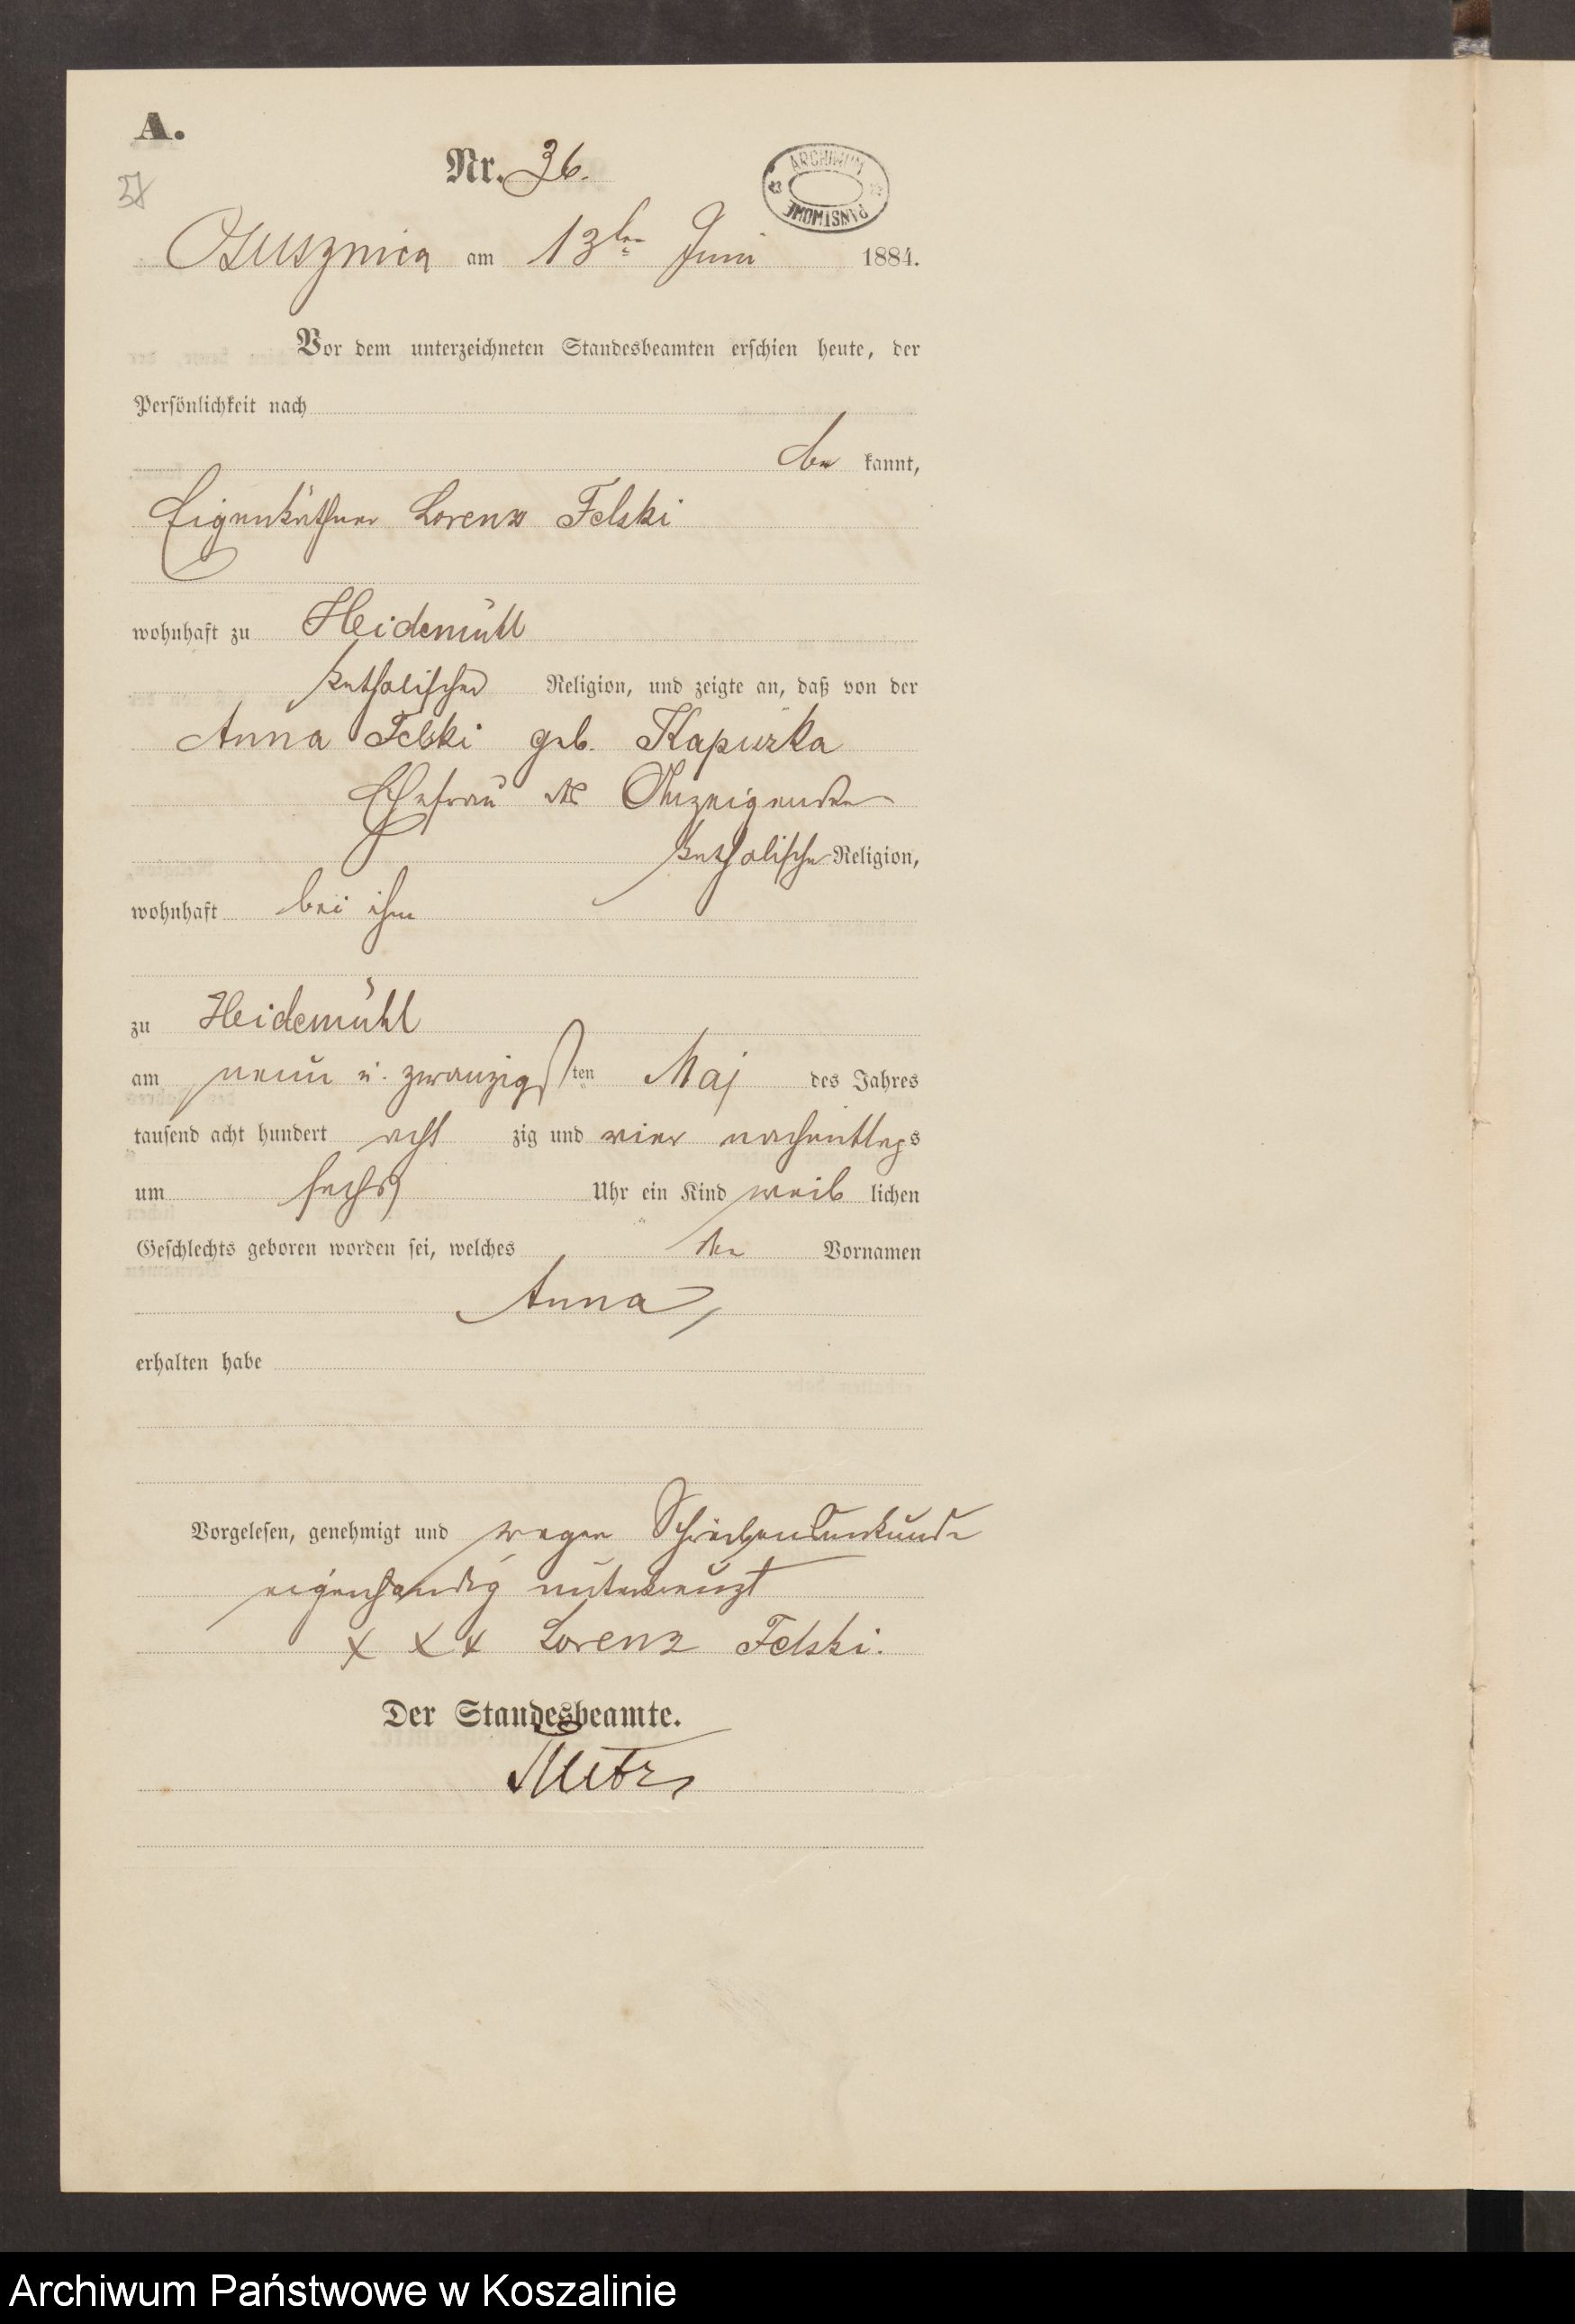 A.
Nr. 36.
ARCHIWUM
PAŃSTWOWE
Osusznica am 13ten Juni 1884.
Vor dem unterzeichneten Standesbeamten erschien heute, der
Persönlichkeit nach
be kannt,
Eigenkäthner Lorenz Felski
wohnhaft zu Heidemühl
katholischer Religion, und zeigte an, daß von der
Anna Felski geb. Kapiszka
Ehefrau des Anzeigenden
katholischer Religion,
wohnhaft bei ihm
zu Heidemühl
am neun u. zwanzigsten Maj des Jahres
tausend acht hundert acht zig und vier nachmittags
um sechs Uhr ein Kind weib lichen
Geschlechts geboren worden sei, welches den Vornamen
Anna,
erhalten habe
Vorgelesen, genehmigt und wegen Schreibensunkunde
eigenhändig unterkreuzt
x x x Lorenz Felski.
Der Standesbeamte.
Archiwum Państwowe w Koszalinie